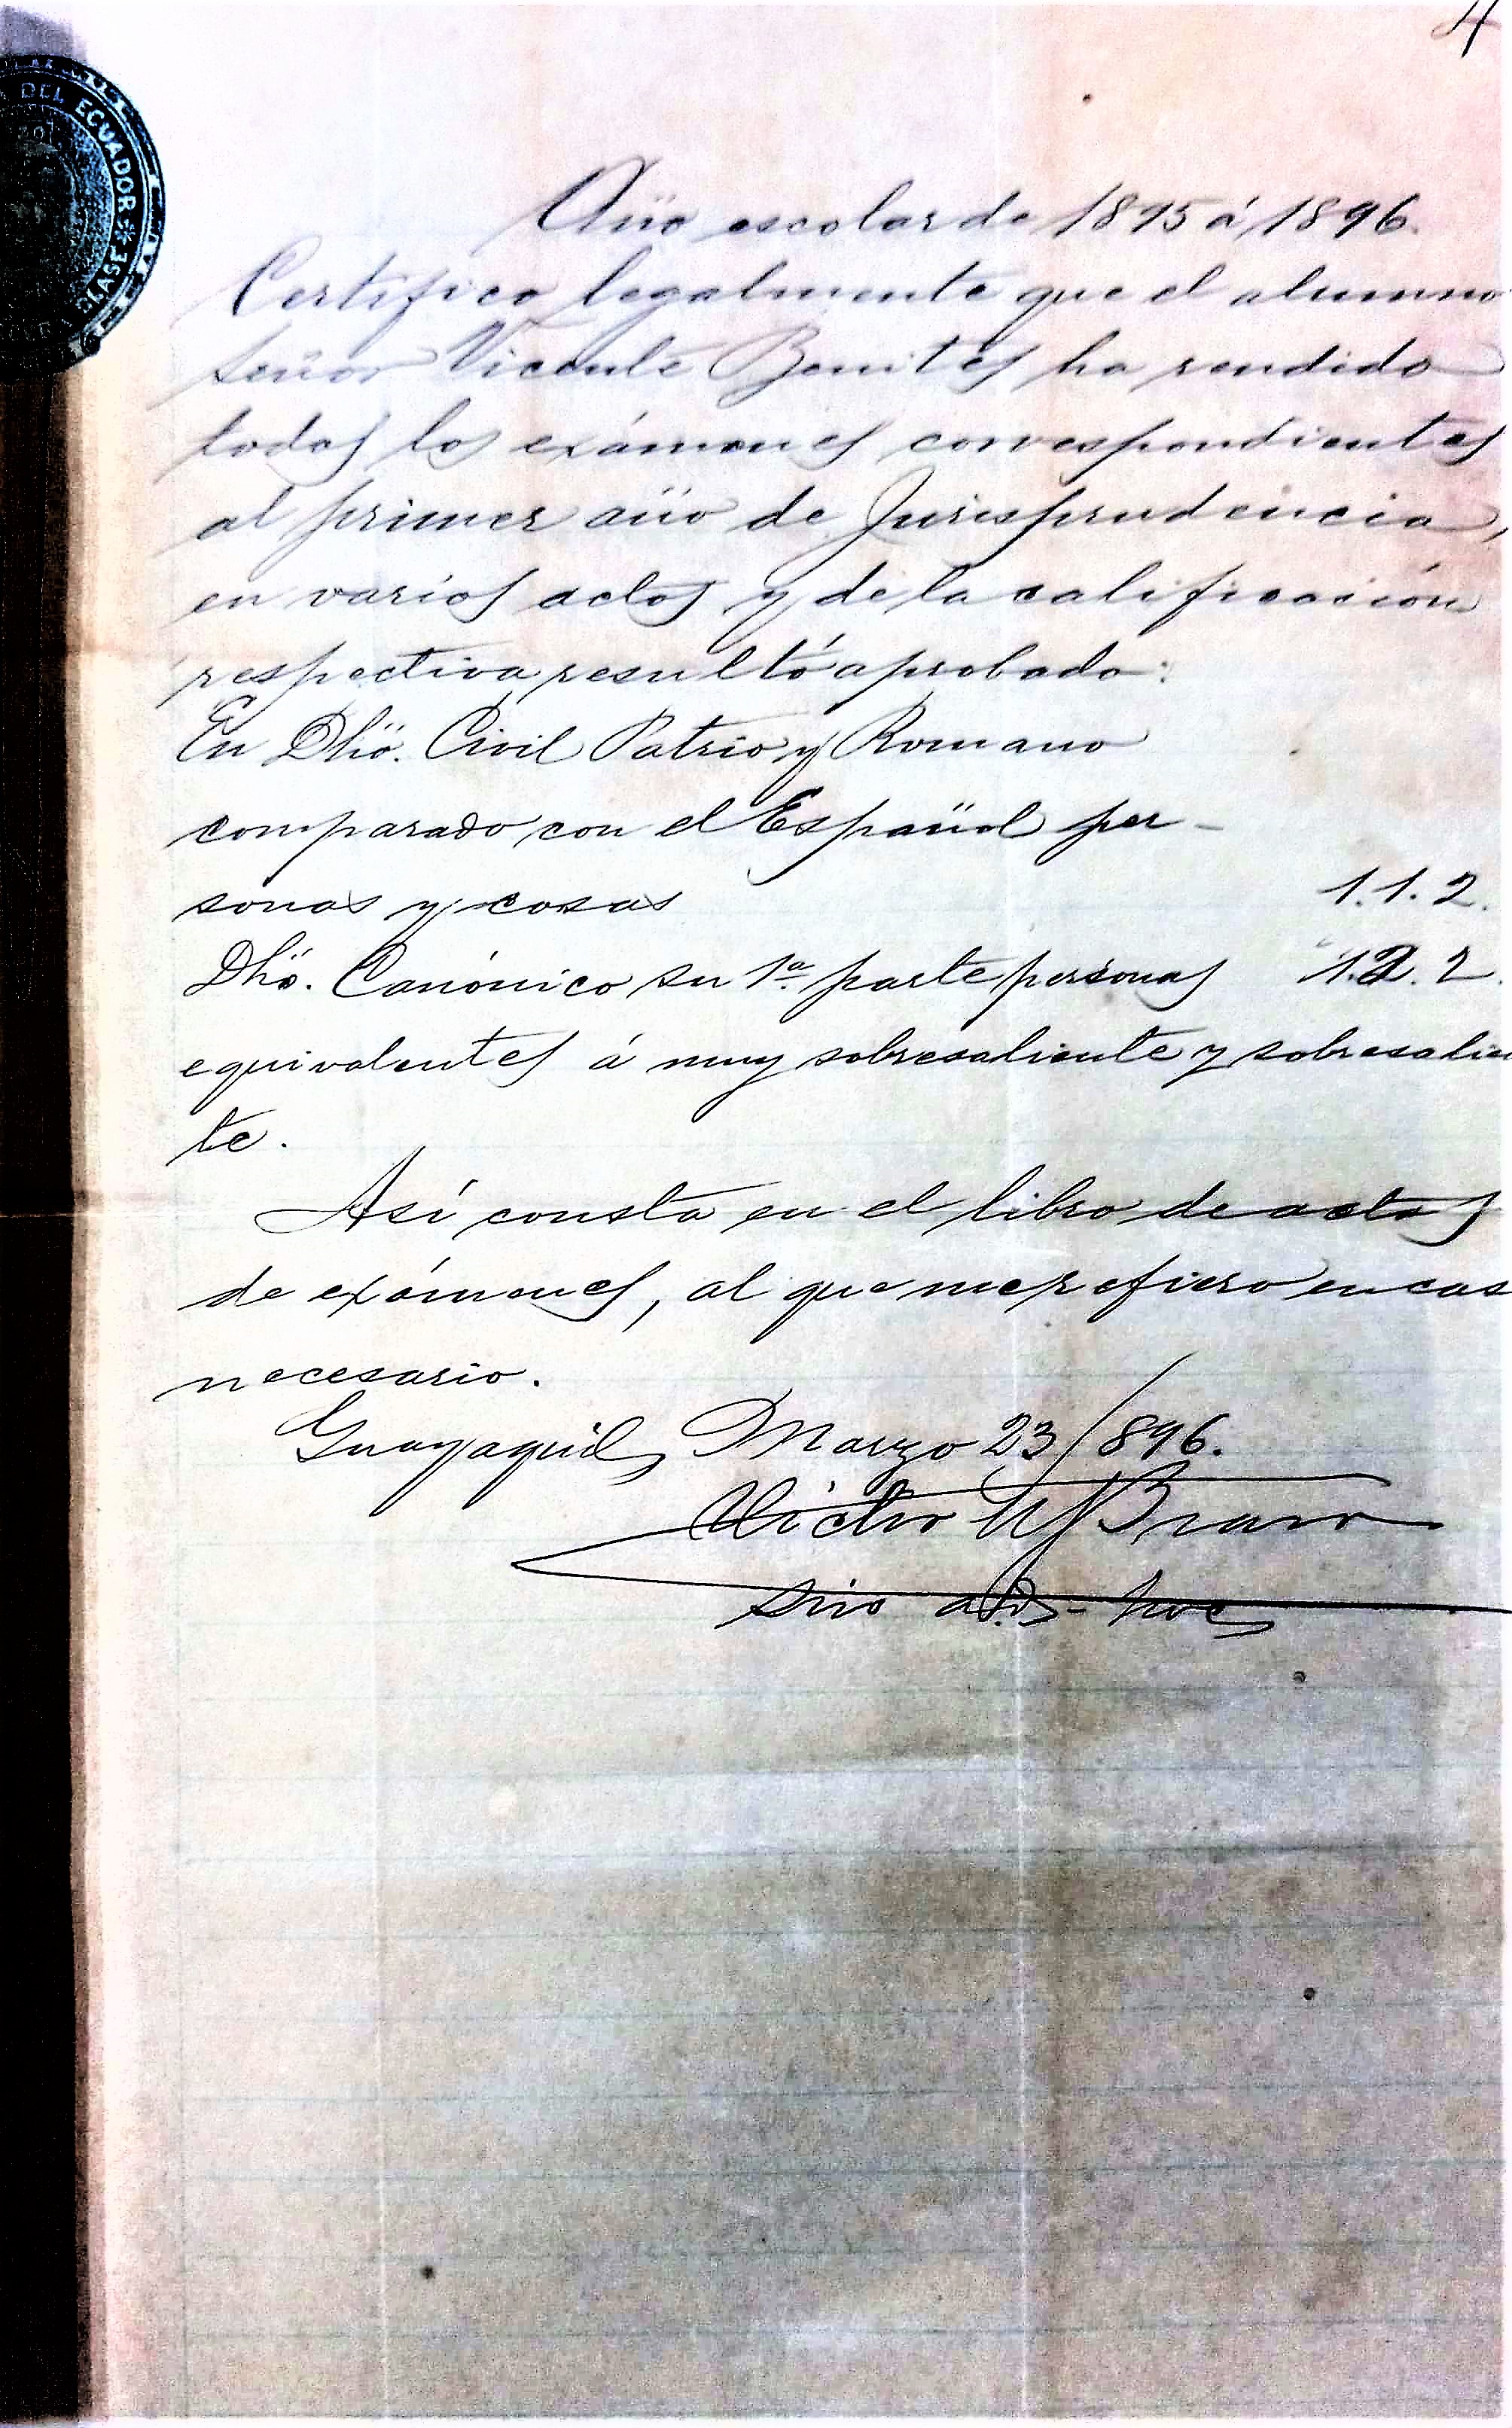 4
DEL ECUADOR
CLASE
Año escolar de 1895 á 1896.
Certifico legalmente que el alumno
señor Vicente Benites ha rendido
todos los exámenes correspondientes
al primer año de Jurisprudencia,
en varios actos y de la calificación
respectiva resultó aprobado:
En Dhõ. Civil Patrio y Romano
comparado con el Español per-
sonas y cosas 1.1.2.
Dhõ. Canónico su 1ª parte personas 1.2.2.
equivalentes á muy sobresaliente y sobresalien
te.
Así consta en el libro de actas
de exámenes, al que me refiero en cas
necesario.
Guayaquil, Marzo 23/896.
Victor M Bravo
Srio ad-hoc